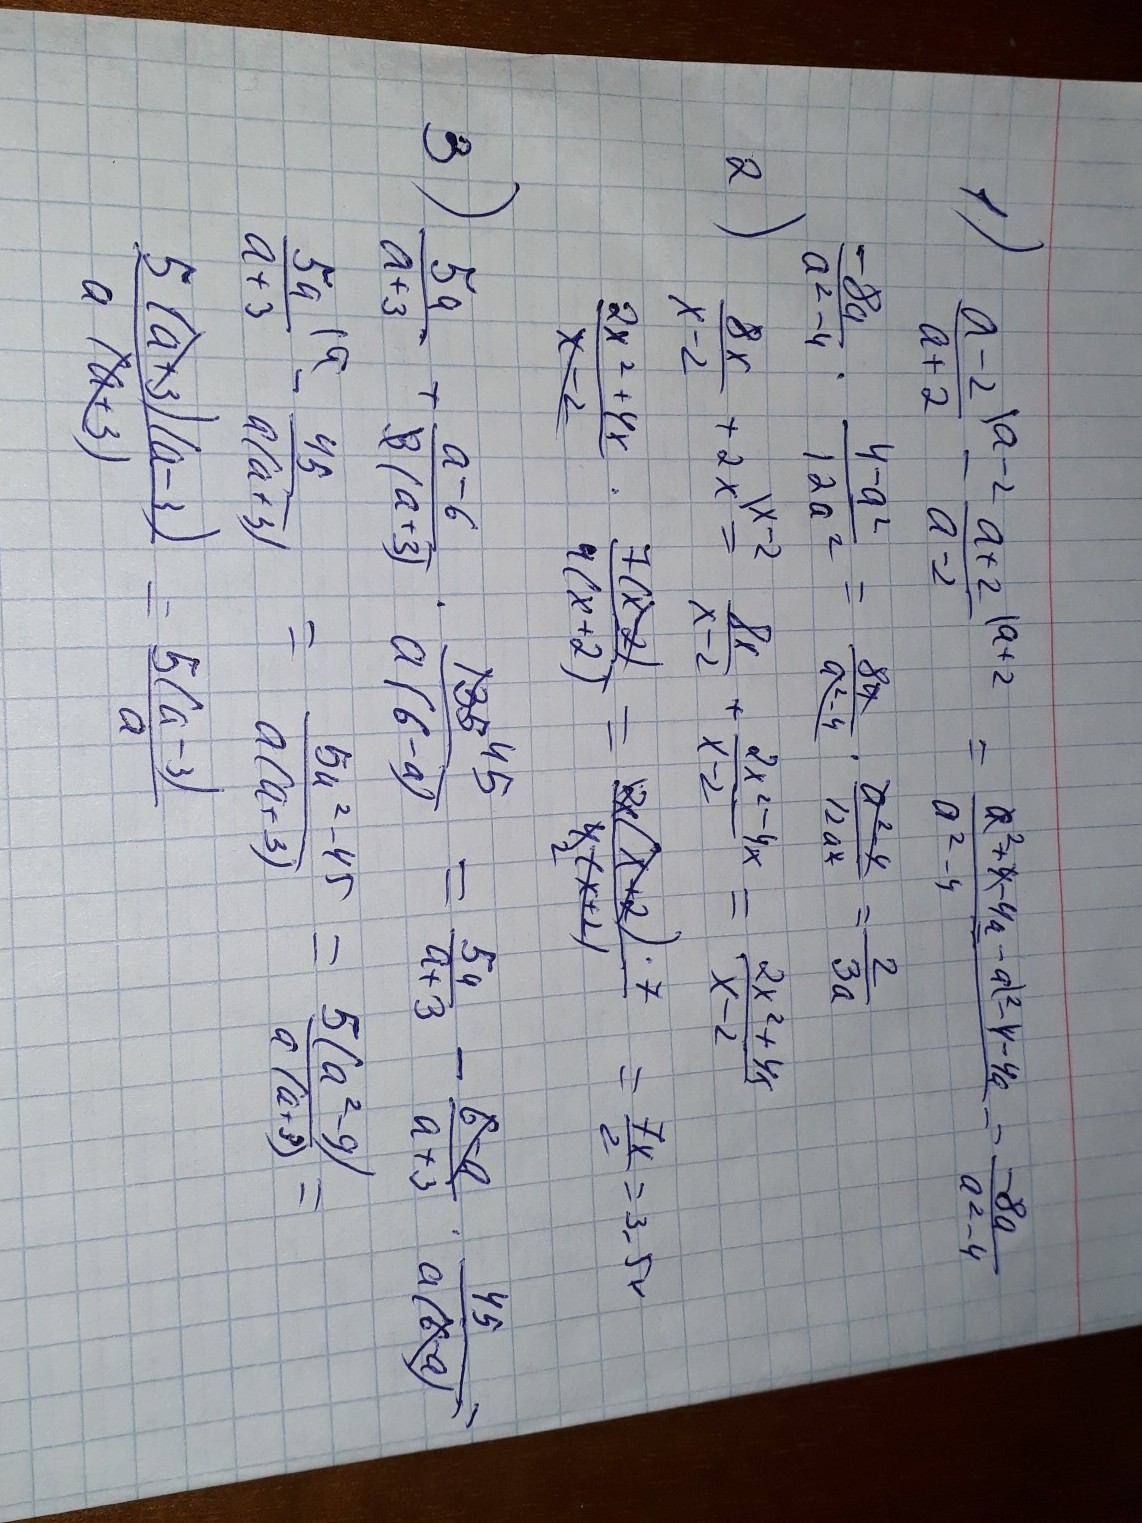 1) (a-2)/(a+2) \a-2 - (a+2)/(a-2) \a+2 = (a²+4-4a-a²-4-4a)/(a²-4) = (-8a)/(a²-4)
(-8a)/(a²-4) · (4-a²)/(12a²) = (8a)/(a²-4) · (a²-4)/(12a²) = 2/(3a)
2) (8x)/(x-2) + 2x \x-2 = (8x)/(x-2) + (2x²-4x)/(x-2) = (2x²+4x)/(x-2)
(2x²+4x)/(x-2) · (7(x-2))/(4(x+2)) = (2x(x+2)·7)/(4 2 (x+2)) = (7x)/2 = 3.5x
3) (5a)/(a+3) + (a-6)/(3(a+3)) · (135 45)/(a(6-a)) = (5a)/(a+3) - (6-a)/(a+3) · 45/(a(6-a)) =
(5a)/(a+3) \a - 45/(a(a+3)) = (5a²-45)/(a(a+3)) = (5(a²-9))/(a(a+3)) =
(5(a+3)(a-3))/(a(a+3)) = (5(a-3))/a